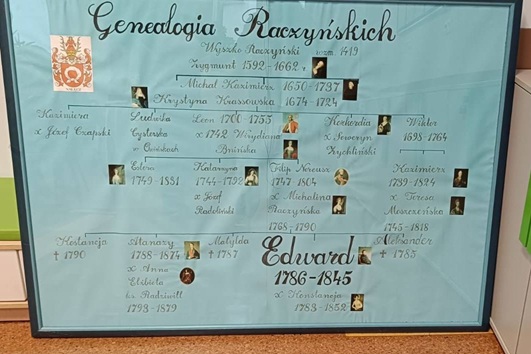 Genealogia Raczyńskich
Wyszko Raczyński wzm. 1419
Zygmunt 1592-1662
Michał Kazimierz 1650-1737
Krystyna Krassowska 1674-1724
Kazimiera
x Józef Czapski
Ludwika
Cysterka
w Owińskach
Leon 1700-1755
x 1742 Wirydiana
Bnińska
Konkordia
x Seweryn
Rychliński
Wiktor
1698-1764
Estera
1749-1831
Katarzyna
1744-1792
x Józef
Radoliński
Filip Nereusz
1747-1804
x Michalina
Raczyńska
1768-1790
Kazimierz
1739-1824
x Teresa
Moszczeńska
1745-1818
Konstancja
† 1790
Atanazy
1788-1874
x Anna
Elżbieta
ks. Radziwiłł
1793-1879
Matylda
† 1787
Edward
1786-1845
x Konstancja
1783-1852
Aleksander
† 1785